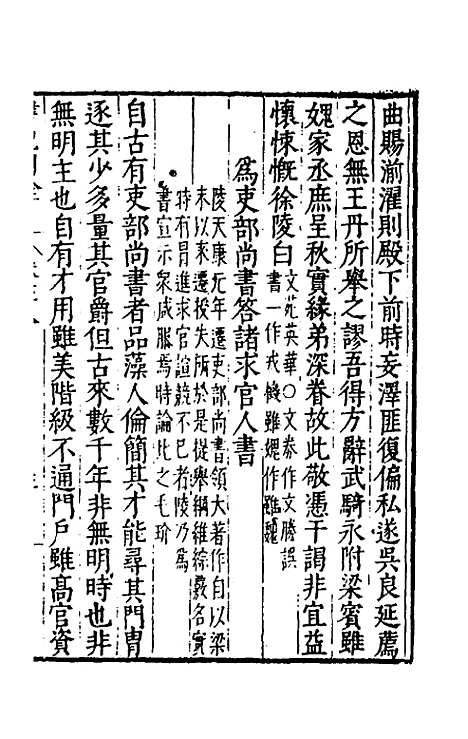 曲賜湔濯則殿下前時妄澤匪復偏私遂吳良延薦
之恩無王丹所舉之謬吾得方辭武騎永附梁賓雖
媿家丞庶呈秋實緣弟深眷故此敬憑干謁非宜益
懷悚慨徐陵白
文苑英華〇文泰作文勝誤
書一作戎機雖緦作雖魏
為吏部尚書答諸求官人書
陵天康元年遷吏部尚書領大著作自以梁
末以來選授失所於是提舉綱維綜覈名實
時有冒進求官諠競不已者陵乃為
書宣示衆咸服焉時論比之毛玠
自古有吏部尚書者品藻人倫簡其才能尋其門胄
逐其少多量其官爵但古來數千年非無明時也非
無明主也自有才用雖美階級不通門戶雖高官資